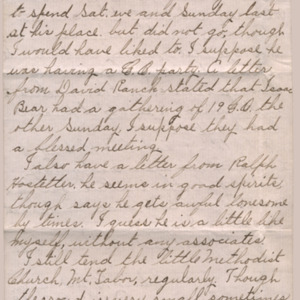 to spend Sat. eve and Sunday last
at his place, but did not go, though
I would have liked to. I suppose he
was having a C.O. party. A letter
from David Ranck stated that Isaac
Bear had a gathering of 19 C.O. the
other Sunday, I suppose they had
a blessed meeting.
I also have a letter from Ralph
Hostetter, he seems in good spirits
though says he gets awful lonesome
by times. I guess he is a little like
myself, without any associates.
I still tend the little Methodist
Church, Mt. Tabor, regularly. Though
the crowd is very small sometimes